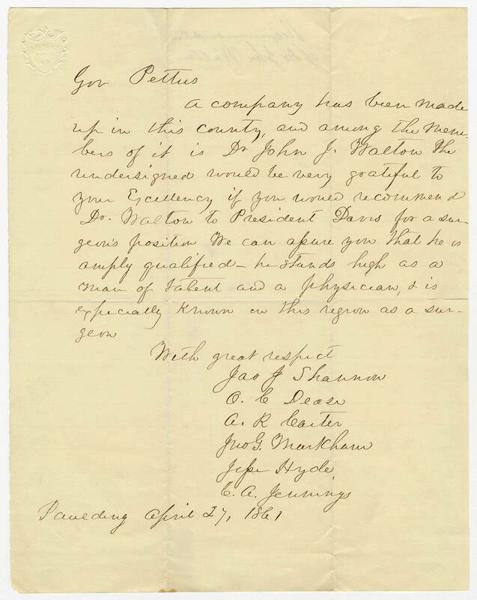 Gov Pettus
A company has been made
up in this county, and among the mem-
bers of it is Dr John J. Walton The
undersigned would be very grateful to
your Excellency if you would recommend
Dr. Walton to President Davis for a sur-
geon's position We can assure you that he is
amply qualified - he stands high as a
man of talent and a physician, & is
especially known in this region as a sur-
geon
With great respect
Jas J Shannon
O. C Dease
A. R Carter
Jno G. Markham
Jesse Hyde
C. A. Jennings
Paulding April 27, 1861